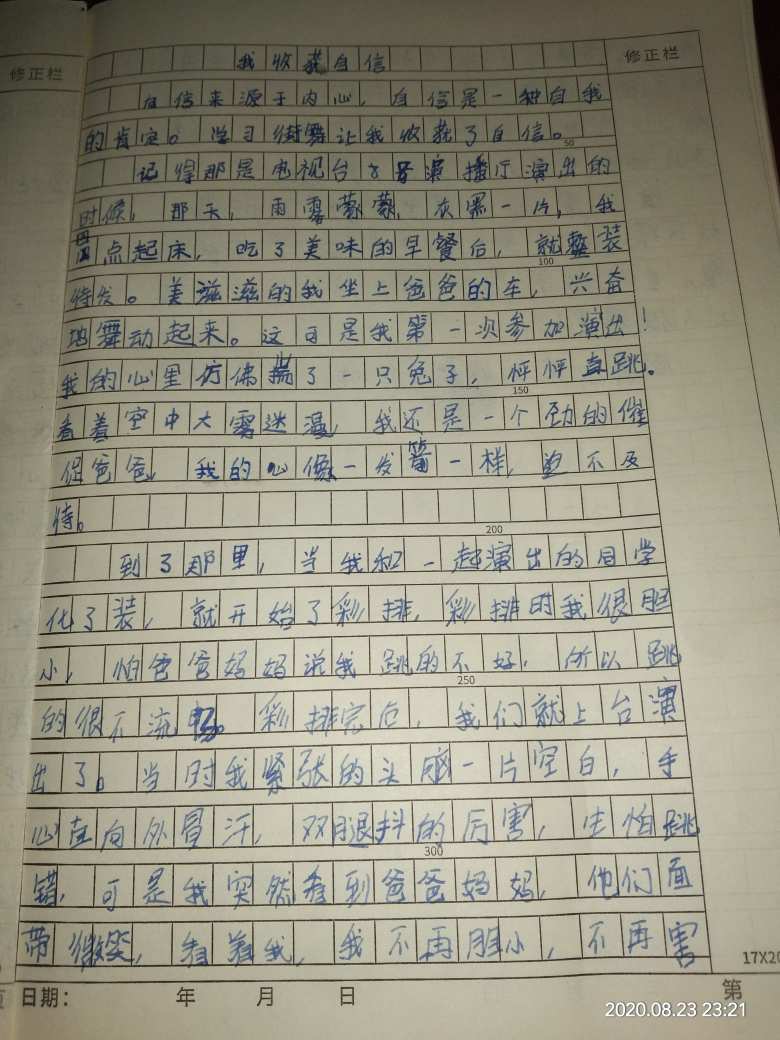 修正栏
修正栏
我收获自信
自信来源于内心，自信是一种自我
的肯定。学习街舞让我收获了自信。
50
记得那是电视台8号演播厅演出的
时候，那天，雨雾蒙蒙，灰黑一片，我
四点起床，吃了美味的早餐后，就整装
100
待发。美滋滋的我坐上爸爸的车，兴奋
地舞动起来。这可是我第一次参加演出！
我的心里仿佛揣了一只兔子，怦怦直跳。
150
看着空中大雾迷漫，我还是一个劲的催
促爸爸，我的心像一发箭一样，迫不及
待。
200
到了那里，当我和一起演出的同学
化了装，就开始了彩排，彩排时我很胆
小，怕爸爸妈妈说我跳的不好，所以跳
250
的很不流畅。彩排完后，我们就上台演
出了。当时我紧张的头脑一片空白，手
心直向外冒汗，双腿抖的厉害，生怕跳
300
错，可是我突然看到爸爸妈妈，他们面
带微笑，看着我，我不再胆小，不再害
17X20
日期： 年 月 日 第
2020.08.23 23:21